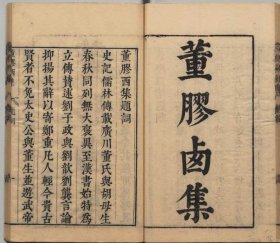 董膠西集
董膠西集題詞
史記儒林傳載廣川董氏與胡母生
春秋同列無大褒異至漢書始特為
立傳賛述劉子政與劉歆劉龔言論
抑揚其辭以寄鄭重凡人輕今貴古
賢者不免太史公與董生並遊武帝